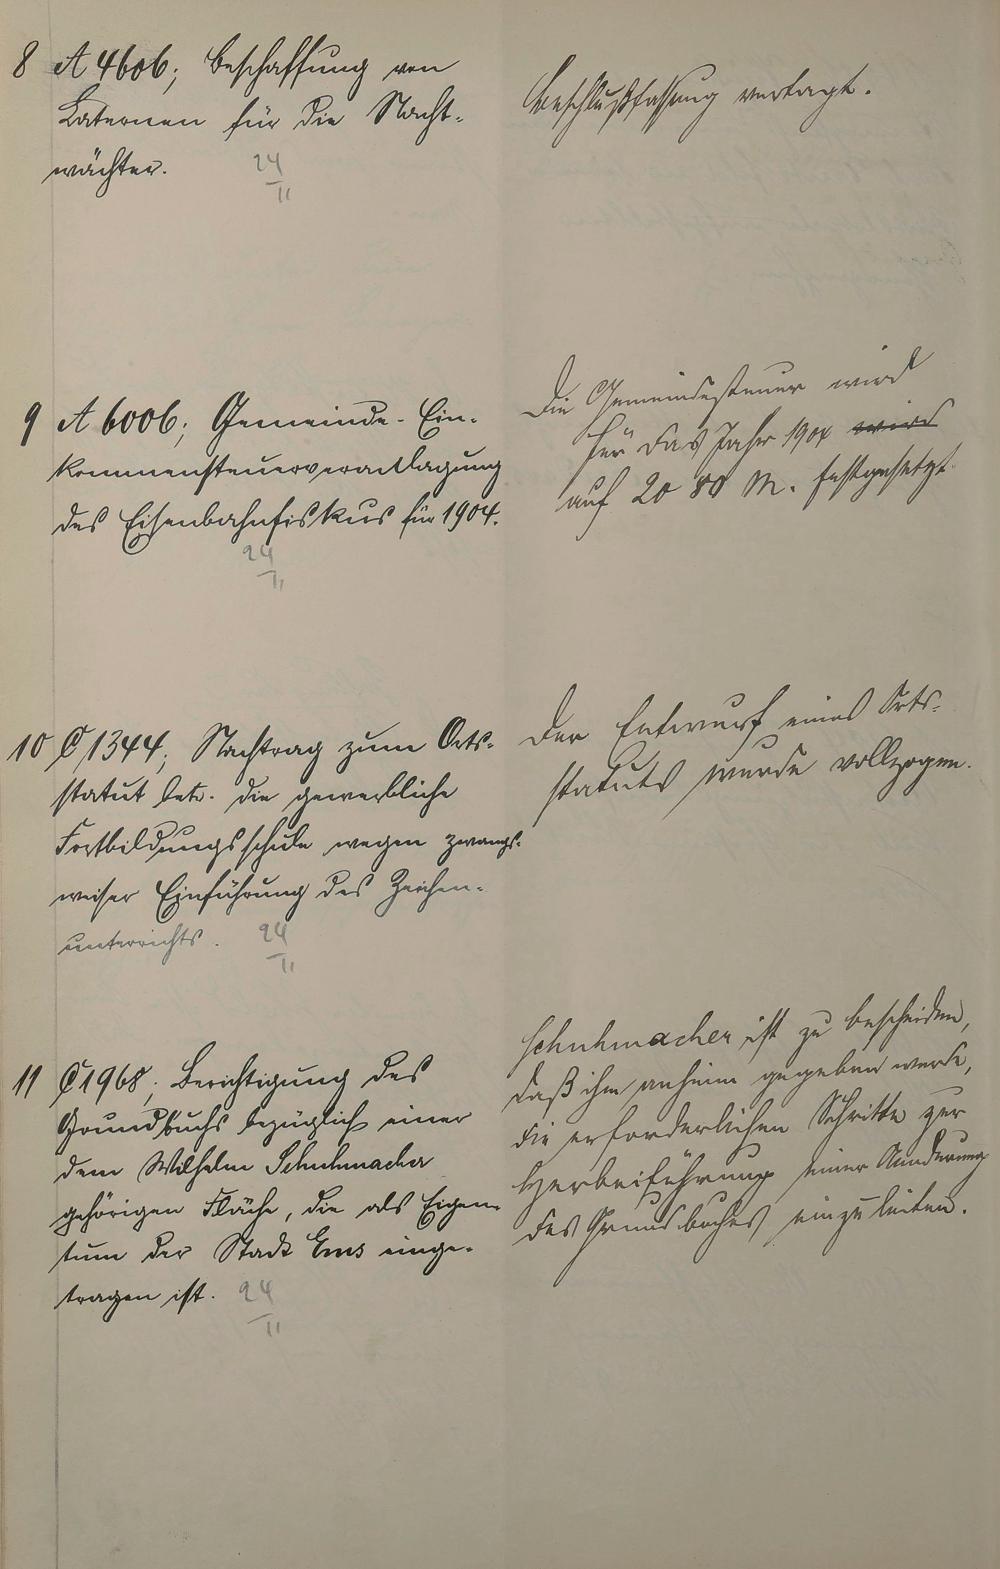 8 A 4606; Beschaffung von
Laternen für die Nacht-
wächter.
24
II
Beschlußfassung vertagt.
9 A 6006; Gemeinde-Ein-
kommensteuerveranlagung
des Eisenbahnfiskus für 1904.
24
II
Die Gemeindesteuer wird
für das Jahr 1904 wird
auf 2080 M. festgesetzt.
10 C 1344; Nachtrag zum Orts-
statut betr. die gewerbliche
Fortbildungsschule wegen zwangs-
weiser Einführung des Zeichen-
unterrichts.
24
II
Der Entwurf eines Orts-
statuts wurde vollzogen.
11 C 1968; Berichtigung des
Grundbuchs bezüglich einer
dem Wilhelm Schuhmacher
gehörigen Fläche, die als Eigen-
tum der Stadt Ems einge-
tragen ist.
24
II
Schuhmacher ist zu bescheiden,
daß ihm anheim gegeben werde,
die erforderlichen Schritte zur
Herbeiführung einer Aenderung
des Grundbuches einzuleiten.